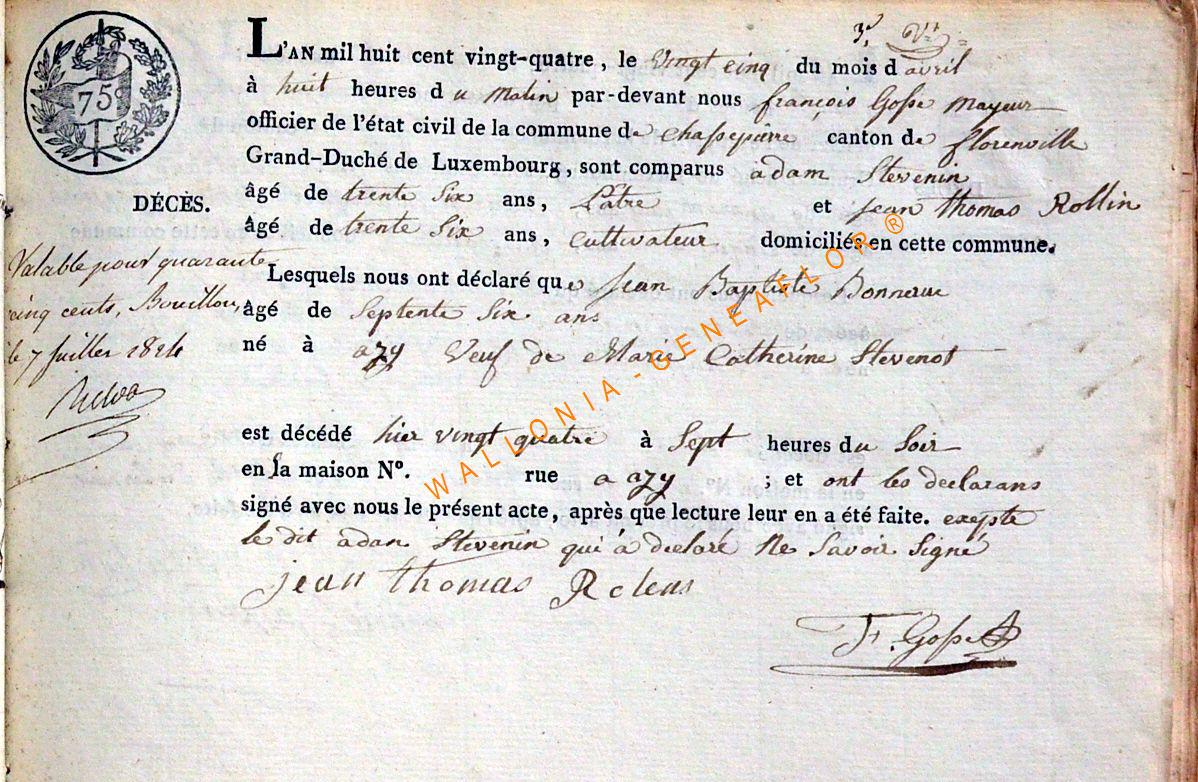 3e. Vtt
75c
L'AN mil huit cent vingt-quatre, le vingt cinq du mois d avril
à huit heures du Matin par-devant nous françois Gosse Mayeur
officier de l'état civil de la commune de chassepierre canton de florenville
Grand-Duché de Luxembourg, sont comparus adam Stevenin
âgé de trente Six ans, Patre et jean thomas Rollin
âgé de trente Six ans, cultivateur domiciliés en cette commune.
DÉCÈS.
Lesquels nous ont déclaré que Jean Baptiste Bonnerue
âgé de Septente Six ans
né à azy Veuf de Marie Catherine Stevenot
est décédé hier vingt quatre à Sept heures du Soir
en sa maison No. rue a azy ; et ont les declarans
signé avec nous le présent acte, après que lecture leur en a été faite. exepte
le dit adan Stevenin qui a declaré Ne Savoir Signé
jean thomas Rolens
F. Gosse
Valable pour quarante
cinq cents, Bouillon,
le 7 Juillet 1824
WALLONIA-GENEAFLOR®